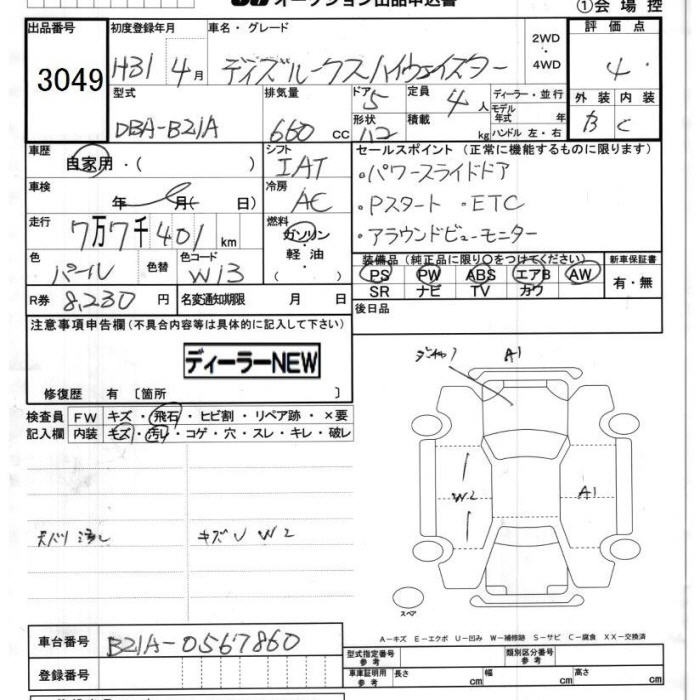 オークション出品申込書 ①会場控
出品番号 初度登録年月 車名・グレード 2WD ・ 4WD 評価点
3049 H31 4月 デイズルークスハイウェイスター 4
型式 排気量 ドア 定員 ディーラー・並行 外装 内装
DBA-B21A 660cc 5 4人 モデル年式 年 B C
形状 積載 kg ハンドル 左・右
車歴 シフト セールスポイント(正常に機能するものに限ります)
自家用・( ) IAT ・パワースライドドア
車検 冷房
年 月( 日) AC ・Pスタート ・ETC
走行 燃料
7万7千401km ガソリン・軽油・( ) ・アラウンドビューモニター
色 色替 色コード 装備品(純正品に限り○をつけてください) 新車保証書
パール W13 PS PW ABS エアB AW 有・無
SR ナビ TV カワ
R券 8,230円 名変通知期限 月 日 後日品
注意事項申告欄(不具合内容等は具体的に記入して下さい)
ディーラーNEW
修復歴 有〔箇所 〕
A1
検査員 FW キズ・飛石・ヒビ割・リペア跡・×要
記入欄 内装 キズ・汚れ・コゲ・穴・スレ・キレ・破レ
W2 A1
キズU W2
スペア
A－キズ E－エクボ U－凹み W－補修跡 S－サビ C－腐食 XX－交換済
車台番号 B21A-0567860
型式指定番号 参考 類別区分番号 参考
登録番号 車庫証明用 参考 長さ cm 幅 cm 高さ cm